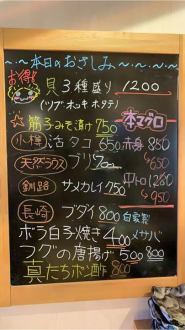 ～本日のおさしみ～
お得!
貝3種盛り 1200
(ツブ ホッキ ホタテ)
筋子みそ漬け 750
本マグロ
小樽 活タコ 650
赤身 850
650
天然 ブリ 700
中トロ 1280
950
釧路 サメカレイ 750
長崎 ブダイ 800
自家製
ボラ白子焼き 400
メサバ
フグの唐揚げ 500
800
真たちポン酢 800